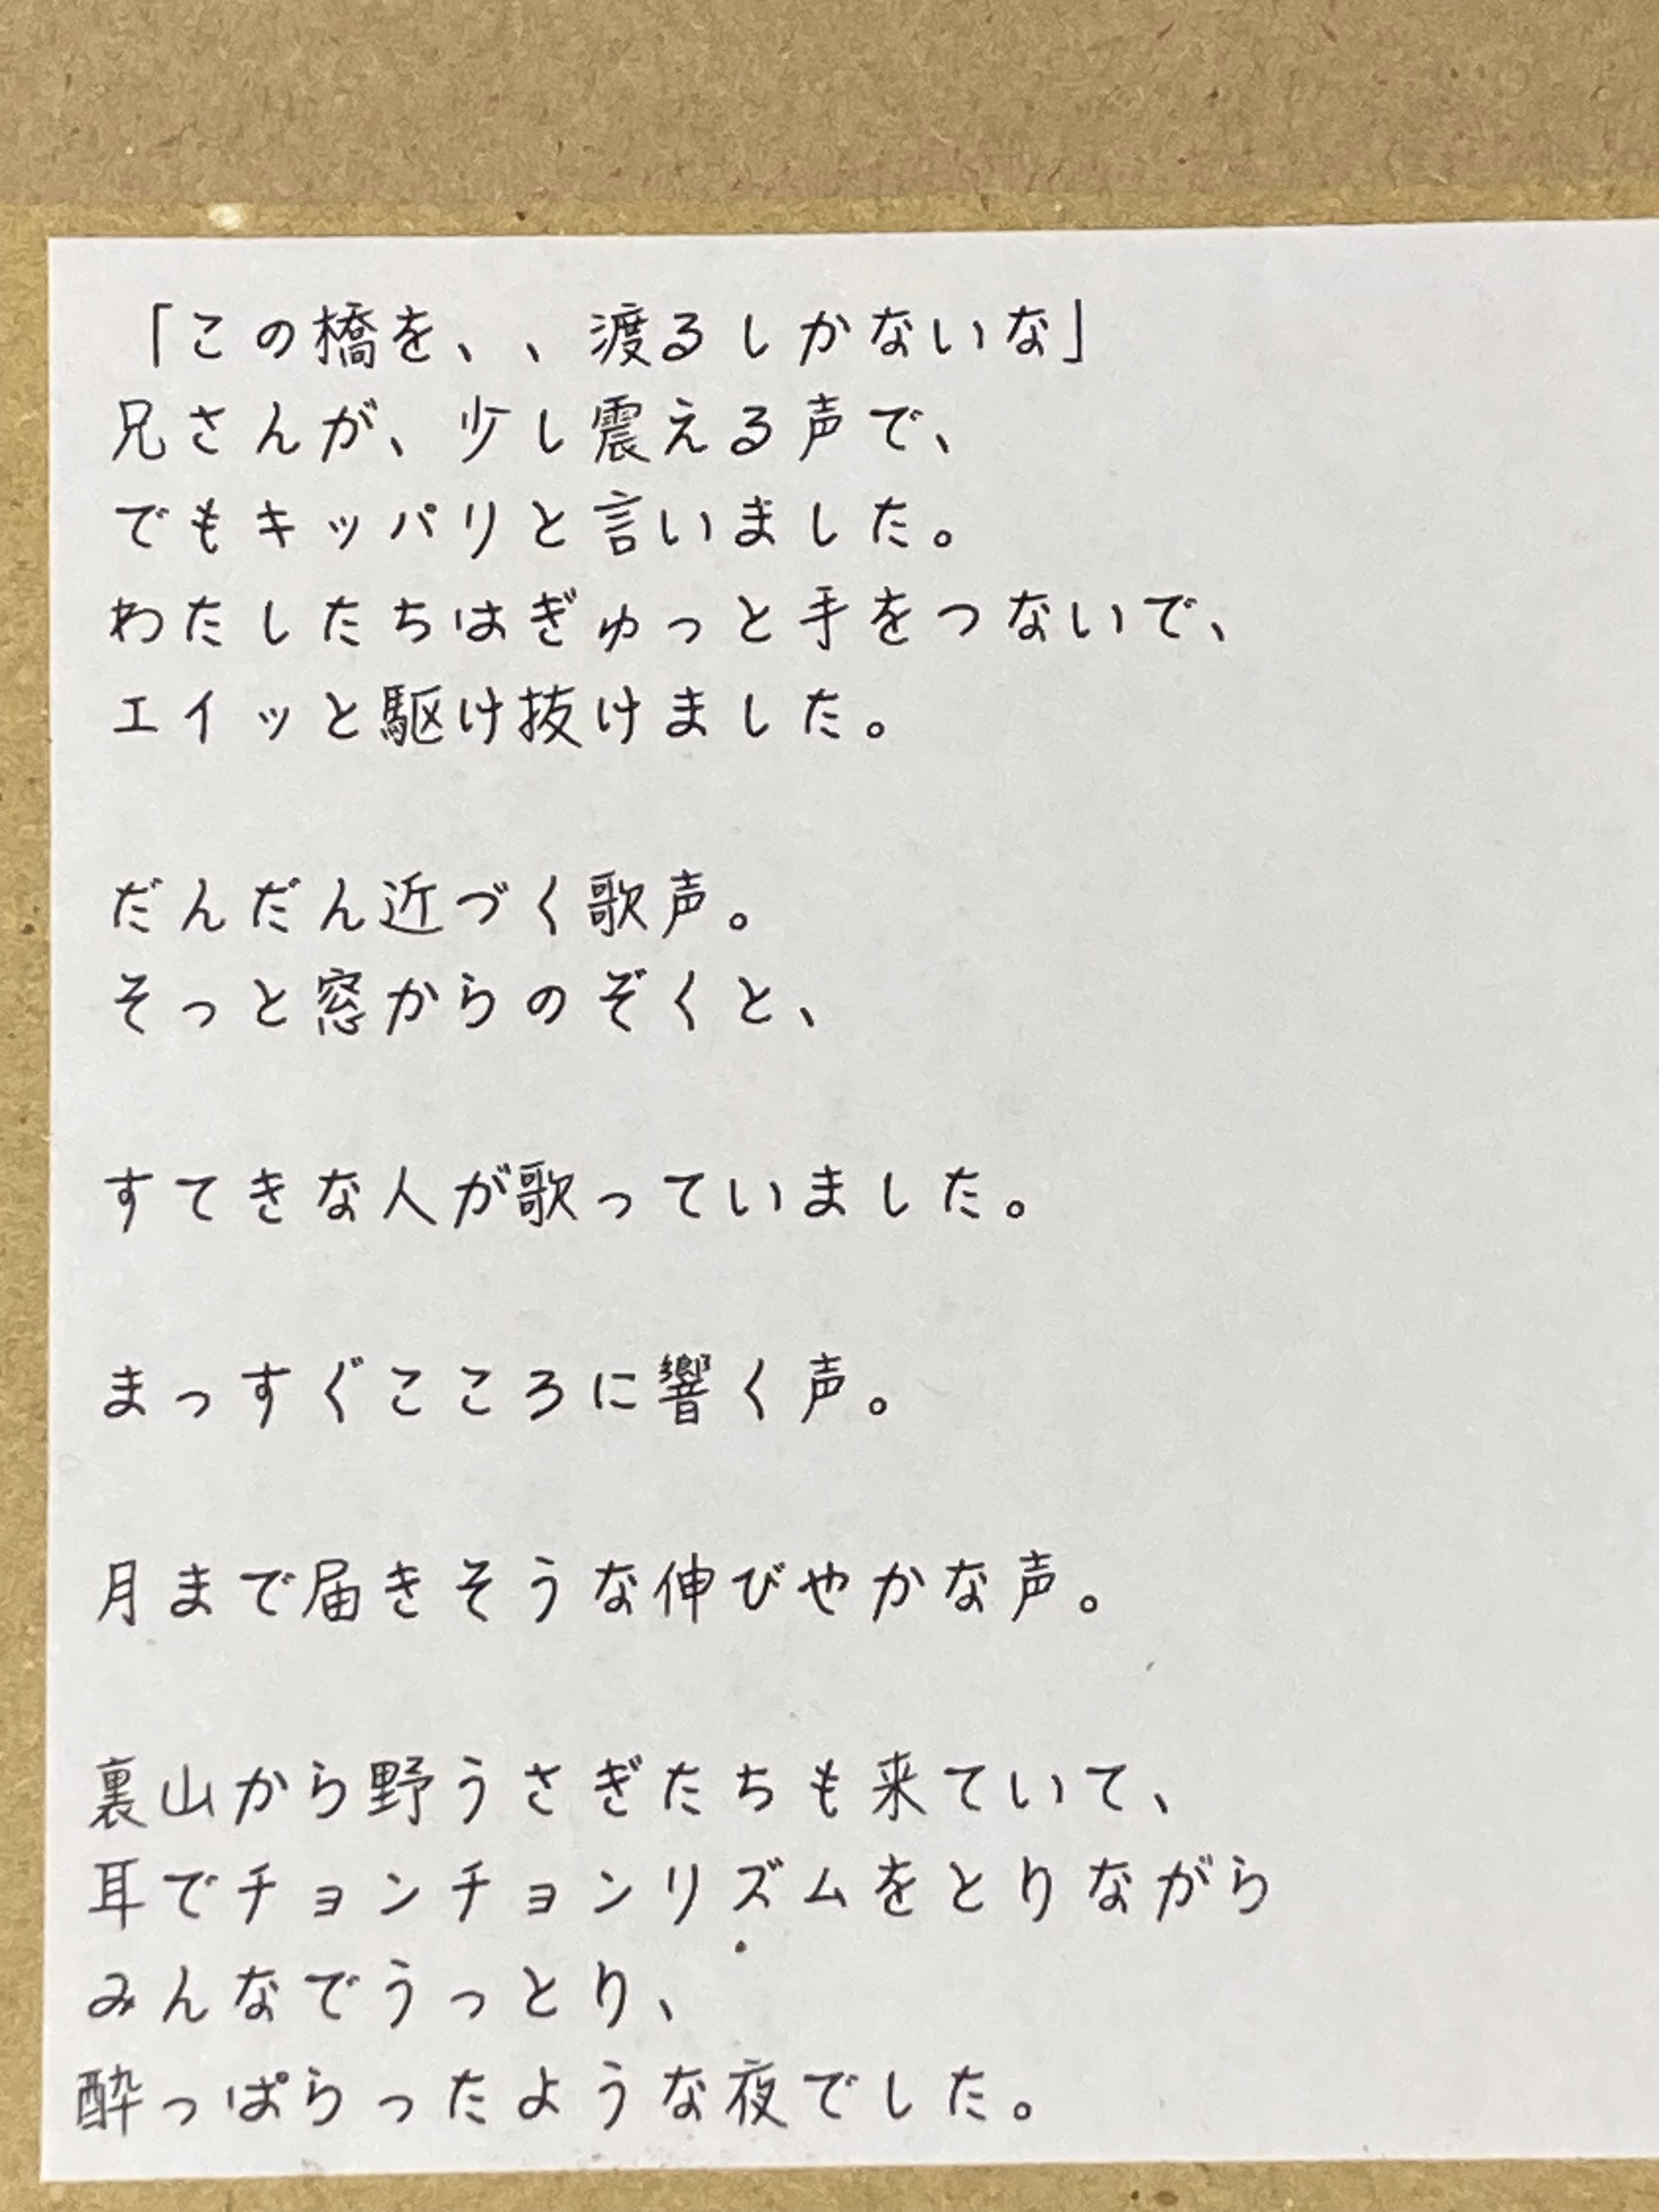 「この橋を、、渡るしかないな」
兄さんが、少し震える声で、
でもキッパリと言いました。
わたしたちはぎゅっと手をつないで、
エイッと駆け抜けました。
だんだん近づく歌声。
そっと窓からのぞくと、
すてきな人が歌っていました。
まっすぐこころに響く声。
月まで届きそうな伸びやかな声。
裏山から野うさぎたちも来ていて、
耳でチョンチョンリズムをとりながら
みんなでうっとり、
酔っぱらったような夜でした。